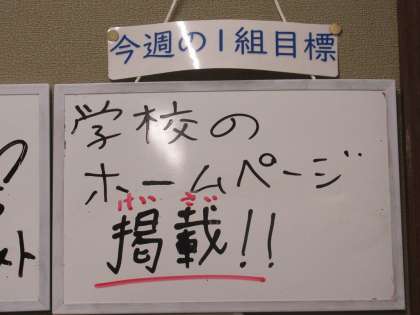 今週の1組目標
学校の
ホームページ
けいさい
掲載!!